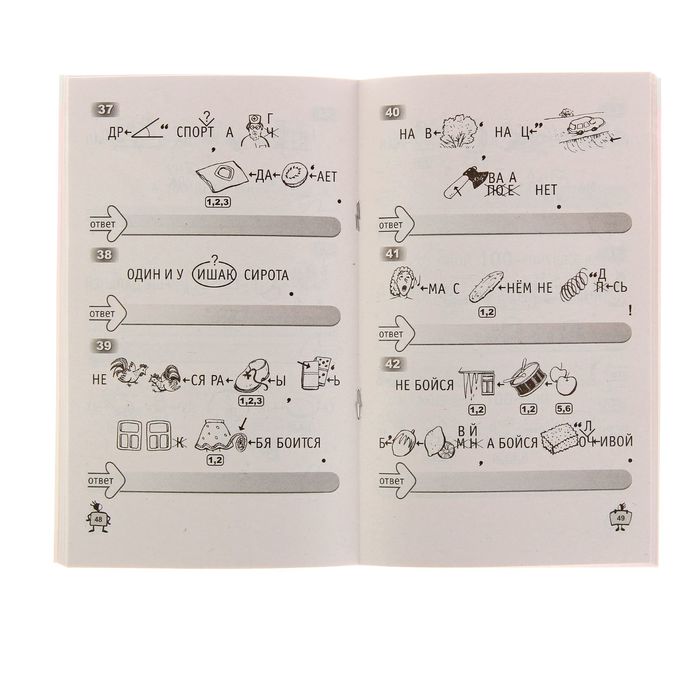 37
?
ДР “ СПОРТ А Г
Ч
ДА АЕТ
1,2,3 .
ответ
38
?
ОДИН И У ИШАК СИРОТА
.
ответ
39
НЕ СЯ РА Ы , Ь
1,2,3
К БЯ БОИТСЯ
1,2 .
ответ
48
40
НА В ” НА Ц ”
,
ВА А
ПО Е НЕТ
.
ответ
41
МА С НЁМ НЕ “ Д
Л СЬ
1,2 !
ответ
42
НЕ БОЙСЯ
1,2 1,2 5,6
Б В Й
М Н А БОЙСЯ “ Л
О ЧИВОЙ
, .
ответ
49